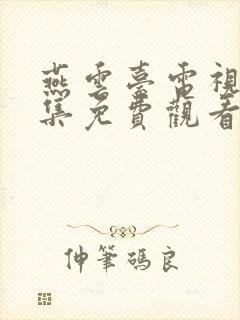 燕雲臺電視
集免費觀看
仲筆碼良